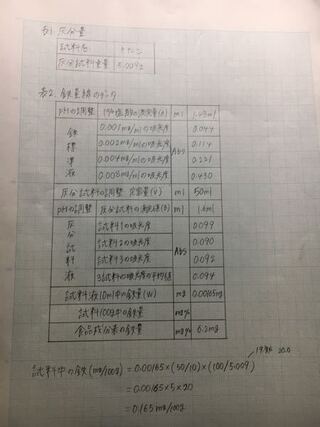 表1 灰分量
試料名
灰分試料重量 5.009g
表2. 鉄量線のデータ
pHの調整 (a) ml
鉄標準液 0.001mg/mlの吸光度 Abs 0.044
0.002mg/mlの吸光度 0.114
0.004mg/mlの吸光度 0.221
0.008mg/mlの吸光度 0.430
灰分試料の調整 定容量(V) ml 50ml
pHの調整 灰分試料の (b) ml 1.6ml
灰分試料液 試料1の吸光度 Abs 0.099
試料2の吸光度 0.090
試料3の吸光度 0.092
3試料の吸光度の平均値 0.094
試料液10ml中の鉄量(W) mg 0.00165mg
試料100g中の鉄量 mg%
食品成分表の鉄量 mg% 6.2mg
20.0
試料中の鉄(mg/100g) = 0.00165×(50/10)×(100/5.009)
= 0.00165×5×20
= 0.165mg/100g